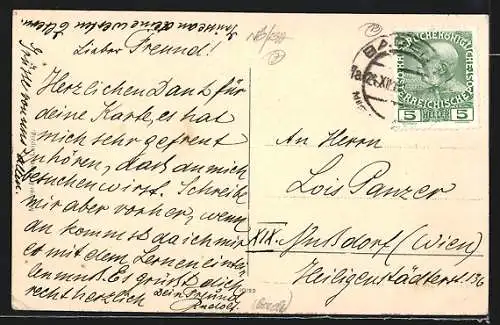 Lieber Freund!
Herzlichen Dank für
deine Karte, es hat
mich sehr gefreut
zu hören, daß du mich
besuchen wirst. Schreibe
mir aber vorher, wenn
du kommst da ich mir
es mit dem Lernen eintei-
len muß. Es grüßt dich
recht herzlich Dein Freund
Rudolf.
Grüße von uns allen.
An Herrn
Lois Panzer
XIX. Nußdorf (Wien)
Heiligenstädterst. 136
5 HELLER 5